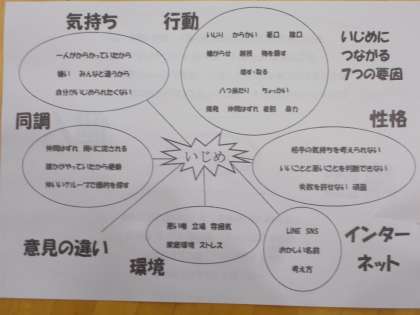 いじめに
つながる
7つの要因
気持ち
一人がからかっていたから
嫌い みんなと違うから
自分がいじめられたくない
行動
いじり からかい 悪口 陰口
嫌がらせ 無視 物を隠す
壊す・取る
八つ当たり ちょっかい
挑発 仲間はずれ 差別 暴力
同調
仲間はずれ 周りに流される
誰かがやっていたから便乗
仲いいグループで標的を探す
いじめ
性格
相手の気持ちを考えられない
いいことと悪いことを判断できない
失敗を許せない 頑固
意見の違い
環境
悪い噂 立場 雰囲気
家庭環境 ストレス
インター
ネット
LINE SNS
おかしい名前
考え方